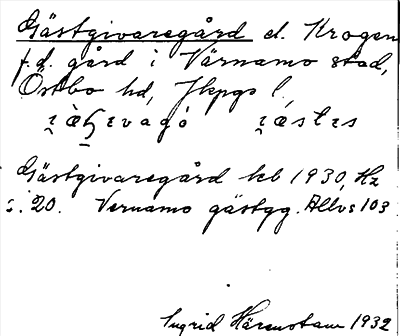 Gästgivaregård el. Krogen
f.d. gård i Värnamo stad,
Östbo hd, Jkpgs l.
Gästgivaregård kb 1930, Hz
s. 20. Vernamo gästgg. Allvs 103
Ingrid 1932